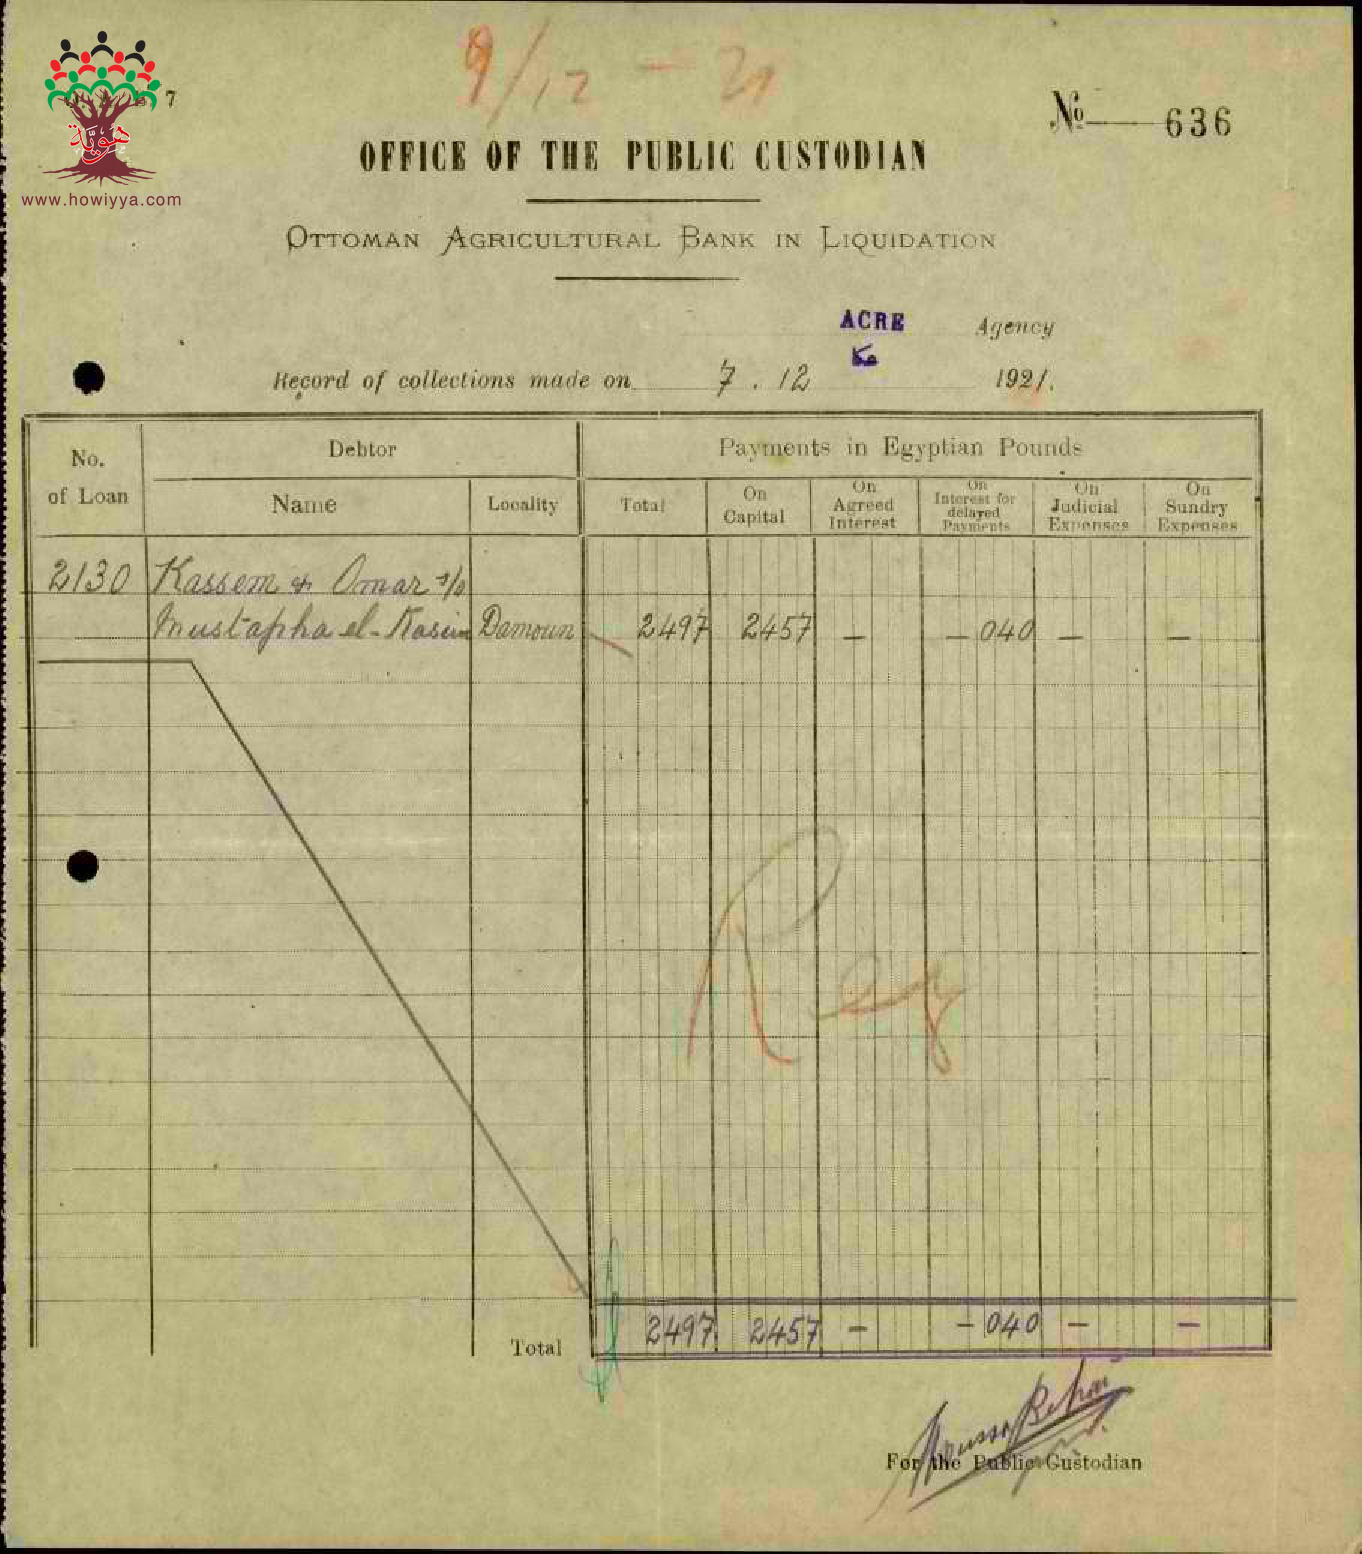 9/12 - 21
7
هويّة
www.howiyya.com
No 636
OFFICE OF THE PUBLIC CUSTODIAN
OTTOMAN AGRICULTURAL BANK IN LIQUIDATION
ACRE Agency
عكا
Record of collections made on 7. 12 1921.
No. of Loan
Debtor
Payments in Egyptian Pounds
Name
Locality
Total
On Capital
On Agreed Interest
On Interest for delayed Payments
On Judicial Expenses
On Sundry Expenses
2130 Kassem & Omar s/o
Mustapha el-Kasim Damoun 2497 2457 — — 040 — —
Reg
Total 2497 2457 — — 040 — —
For the Public Custodian